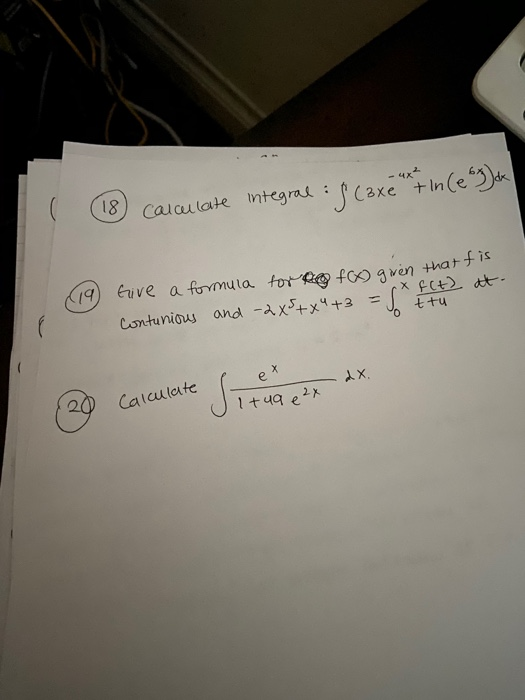 (18) Calculate integral: ∫(3xe^{-4x^2} + ln(e^{6x}))dx
(19) Give a formula for f(x) given that f is
contunious and -2x^5+x^4+3 = ∫_0^x f(t)/(t+4) dt.
(20) Calculate ∫ e^x/(1+49e^{2x}) dx.